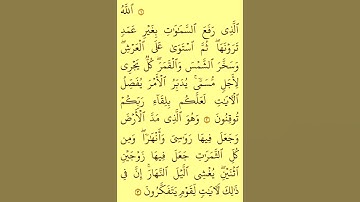 ١ ٱللَّهُ
ٱلَّذِى رَفَعَ ٱلسَّمَٰوَٰتِ بِغَيْرِ عَمَدٍ
تَرَوْنَهَا ۖ ثُمَّ ٱسْتَوَىٰ عَلَى ٱلْعَرْشِ ۖ
وَسَخَّرَ ٱلشَّمْسَ وَٱلْقَمَرَ ۖ كُلٌّ يَجْرِى
لِأَجَلٍ مُّسَمًّى ۚ يُدَبِّرُ ٱلْأَمْرَ يُفَصِّلُ
ٱلْءَايَٰتِ لَعَلَّكُم بِلِقَآءِ رَبِّكُمْ
تُوقِنُونَ ٢ وَهُوَ ٱلَّذِى مَدَّ ٱلْأَرْضَ
وَجَعَلَ فِيهَا رَوَٰسِىَ وَأَنْهَٰرًا ۖ وَمِن
كُلِّ ٱلثَّمَرَٰتِ جَعَلَ فِيهَا زَوْجَيْنِ
ٱثْنَيْنِ ۖ يُغْشِى ٱلَّيْلَ ٱلنَّهَارَ ۚ إِنَّ فِى
ذَٰلِكَ لَءَايَٰتٍ لِّقَوْمٍ يَتَفَكَّرُونَ ٣